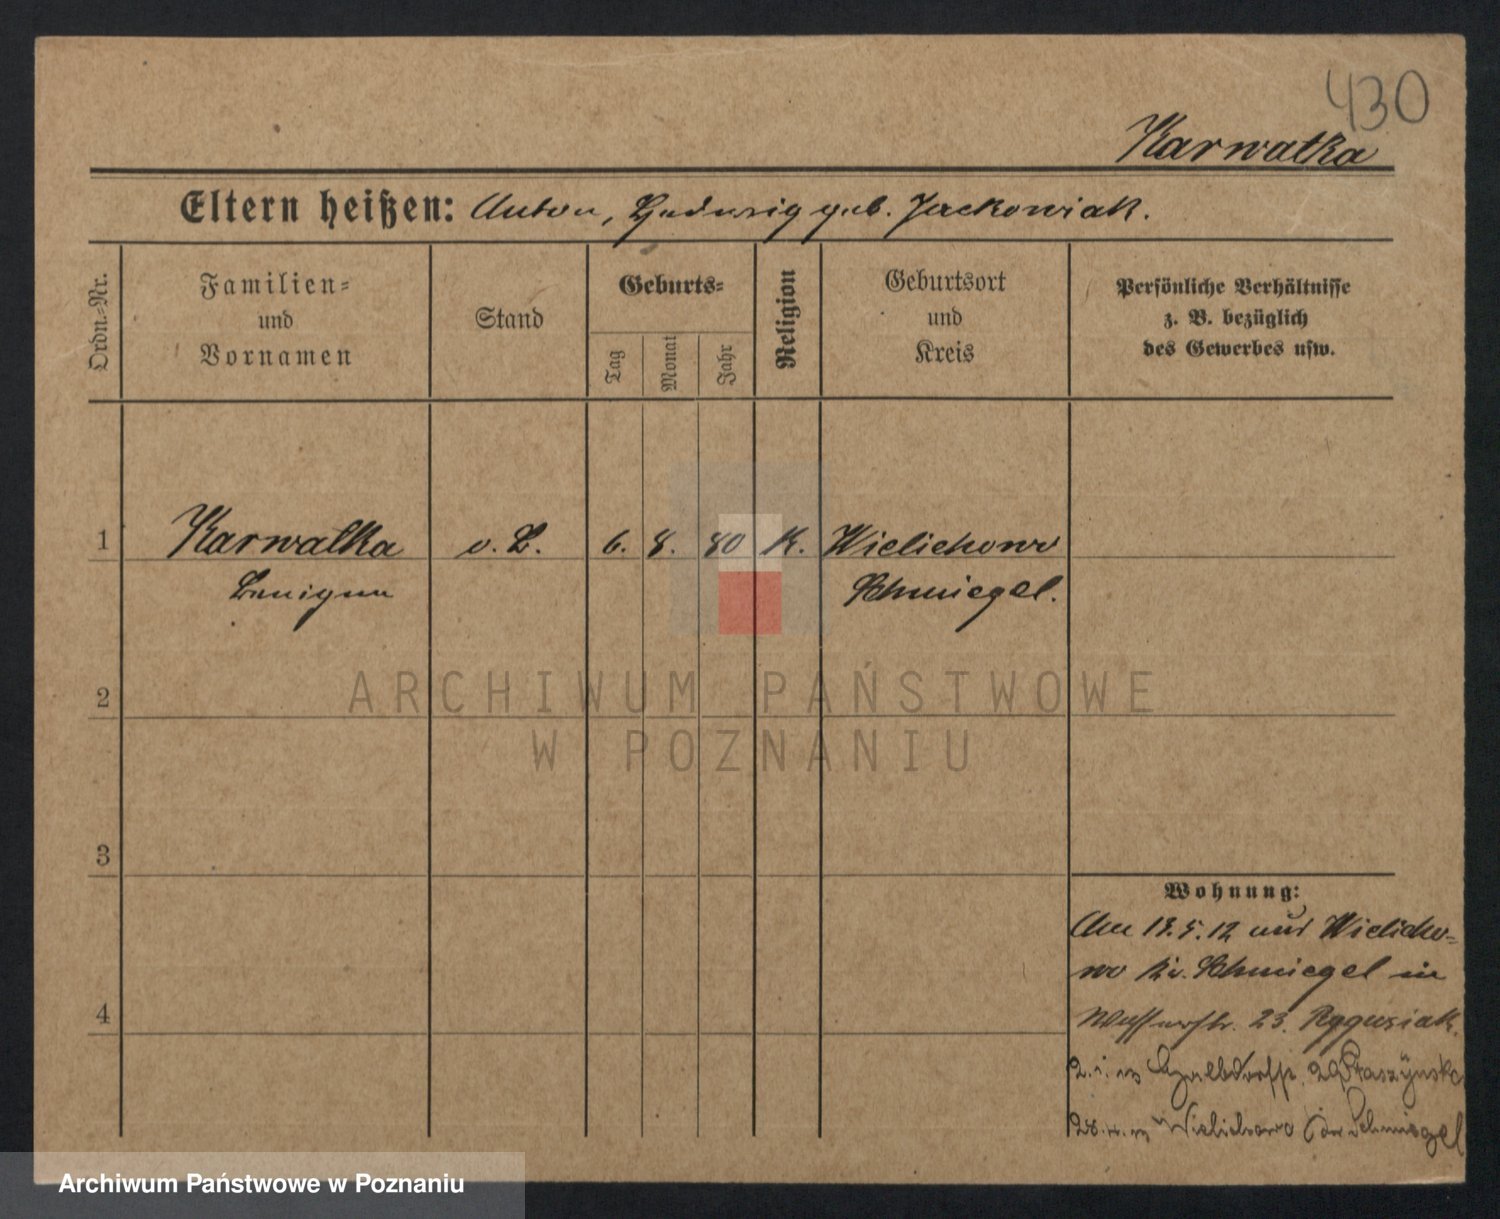 430
Karwatka
Eltern heißen: Anton, Hedwig geb. Jackowiak.
Ordn.-Nr.
Familien-
und
Vornamen
Stand
Geburts-
Tag
Monat
Jahr
Religion
Geburtsort
und
Kreis
Persönliche Verhältnisse
z. B. bezüglich
des Gewerbes usw.
1 Karwatka o. B. 6. 8. 80 K. Wielichowo
Schmiegel.
2
ARCHIWUM PAŃSTWOWE
W POZNANIU
3
Wohnung:
Am 13.5.12 aus Wielicho-
wo Kr. Schmiegel in
4
Wasserstr. 23.
Wielichowo Schmiegel
Archiwum Państwowe w Poznaniu